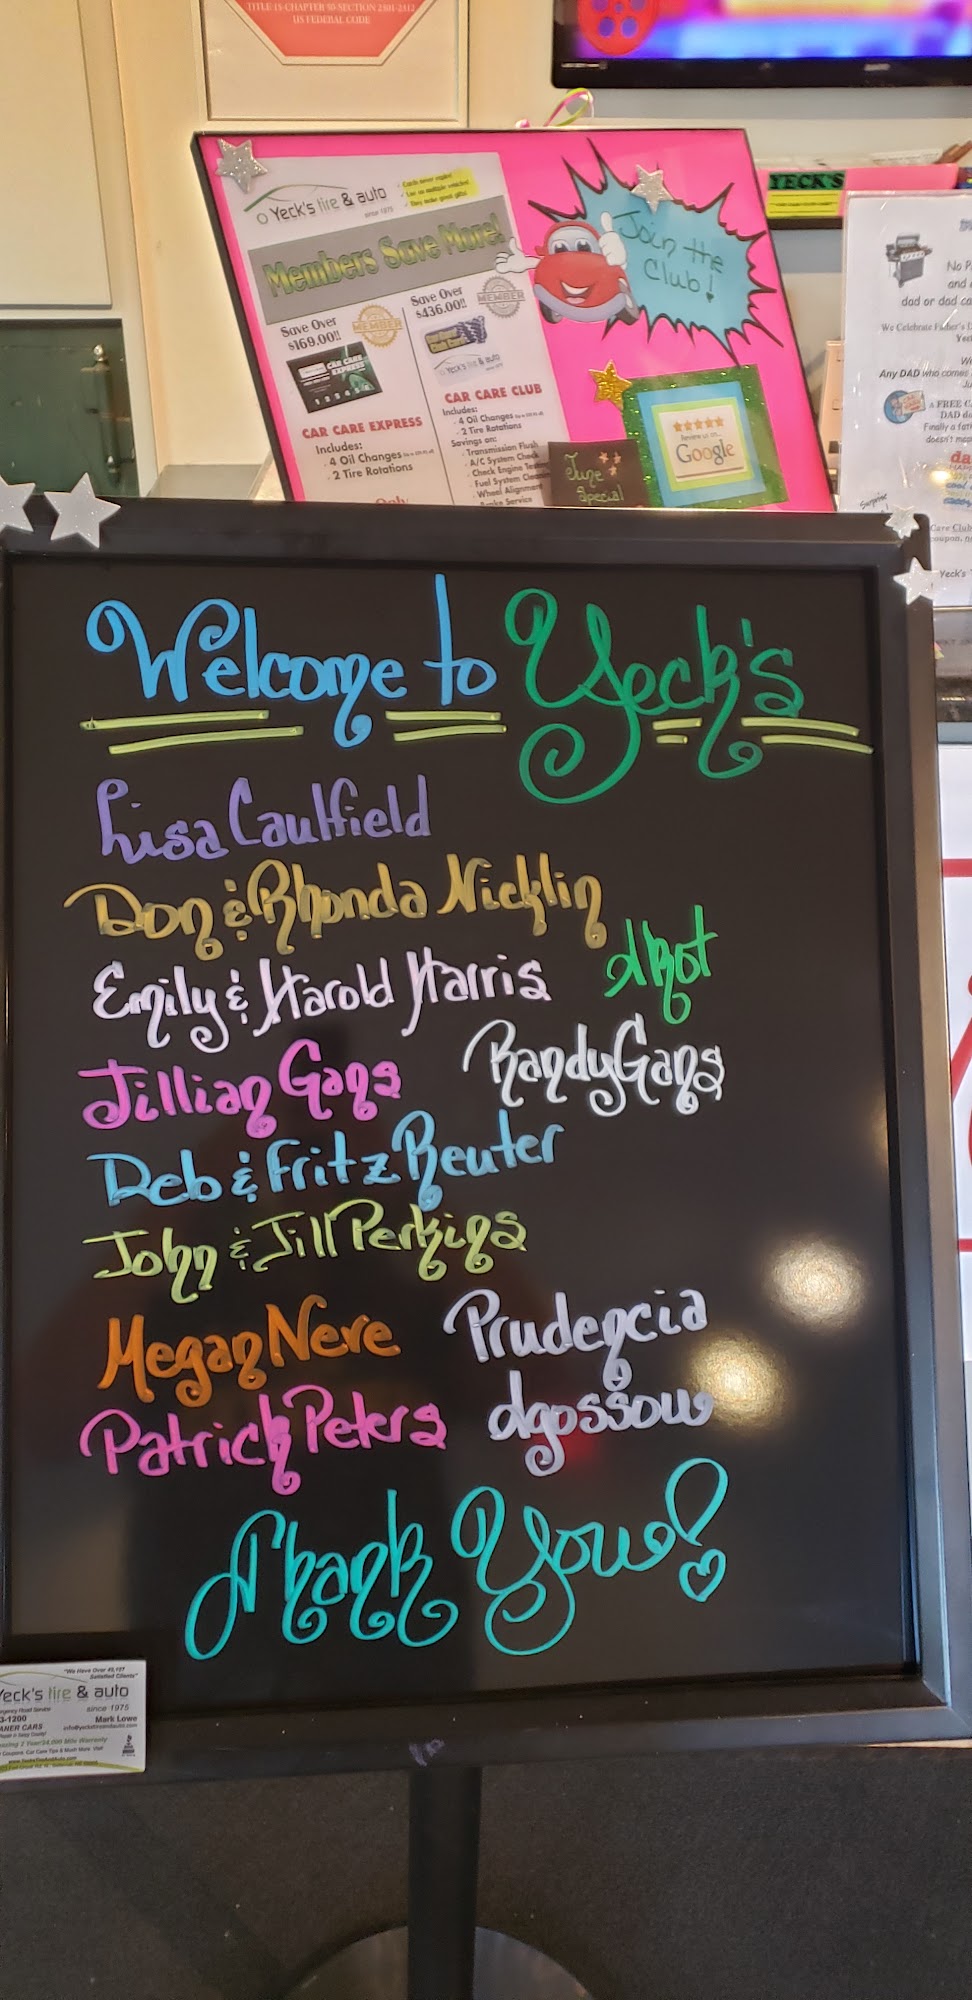 TITLE 15-CHAPTER 50-SECTION 2301-2312
US FEDERAL CODE
Yeck's tire & auto
since 1975
Cards never expire!
Use on multiple vehicles!
They make great gifts!
Members Save More!
Save Over
$169.00!!
MEMBER
CAR CARE
EXPRESS
CAR CARE EXPRESS
Includes:
4 Oil Changes
2 Tire Rotations
Only
Save Over
$436.00!!
MEMBER
Yeck's tire & auto
CAR CARE CLUB
Includes:
- 4 Oil Changes
- 2 Tire Rotations
Savings on:
- Transmission Flush
- A/C System Check
- Check Engine Testing
- Fuel System
- Wheel Alignment
Service
Join the
Club!
June
Special
Review us on...
Google
YECK'S
No
and
dad or dad
We Celebrate Father's
Yeck
Any DAD who comes
a FREE
DAD
Finally a
doesn't
Surprise
Care Club
coupon,
Yeck's
Welcome to Yeck's
Lisa Caulfield
Don & Rhonda Nicklin
Emily & Harold Harris
dkot
Jillian Gans
Randy Gans
Deb & Fritz Reuter
John & Jill Perkins
Megan Nere
Prudencia
Patrick Peters
dgossow
Thank You!
"We Have Over
Satisfied Clients"
Yeck's tire & auto
since 1975
Emergency Road Service
3-1200
Mark Lowe
ANER CARS
info@yeckstireandauto.com
2 Year/24,000 Mile Warranty
Coupons, Car Care Tips & Much More Visit
www.YecksTireAndAuto.com